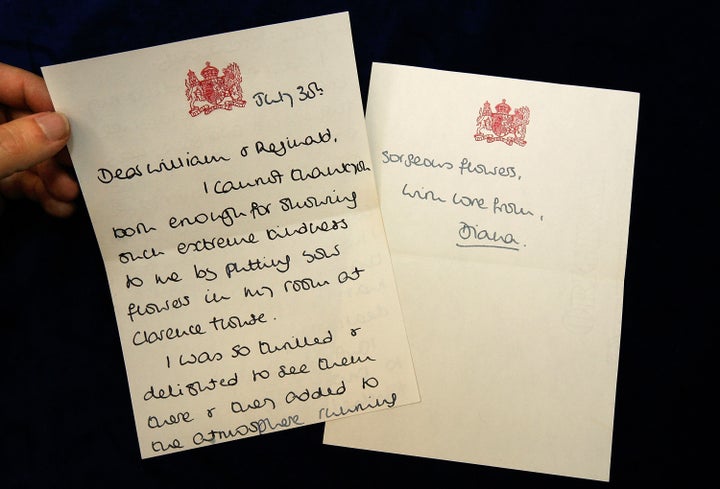 July 30th
Dear William & Reginald,
I cannot thank you
both enough for showing
such extreme kindness
to me by putting your
flowers in my room at
Clarence House.
I was so thrilled &
delighted to see them
there & they added to
the atmosphere running
gorgeous flowers,
with love from,
Diana.